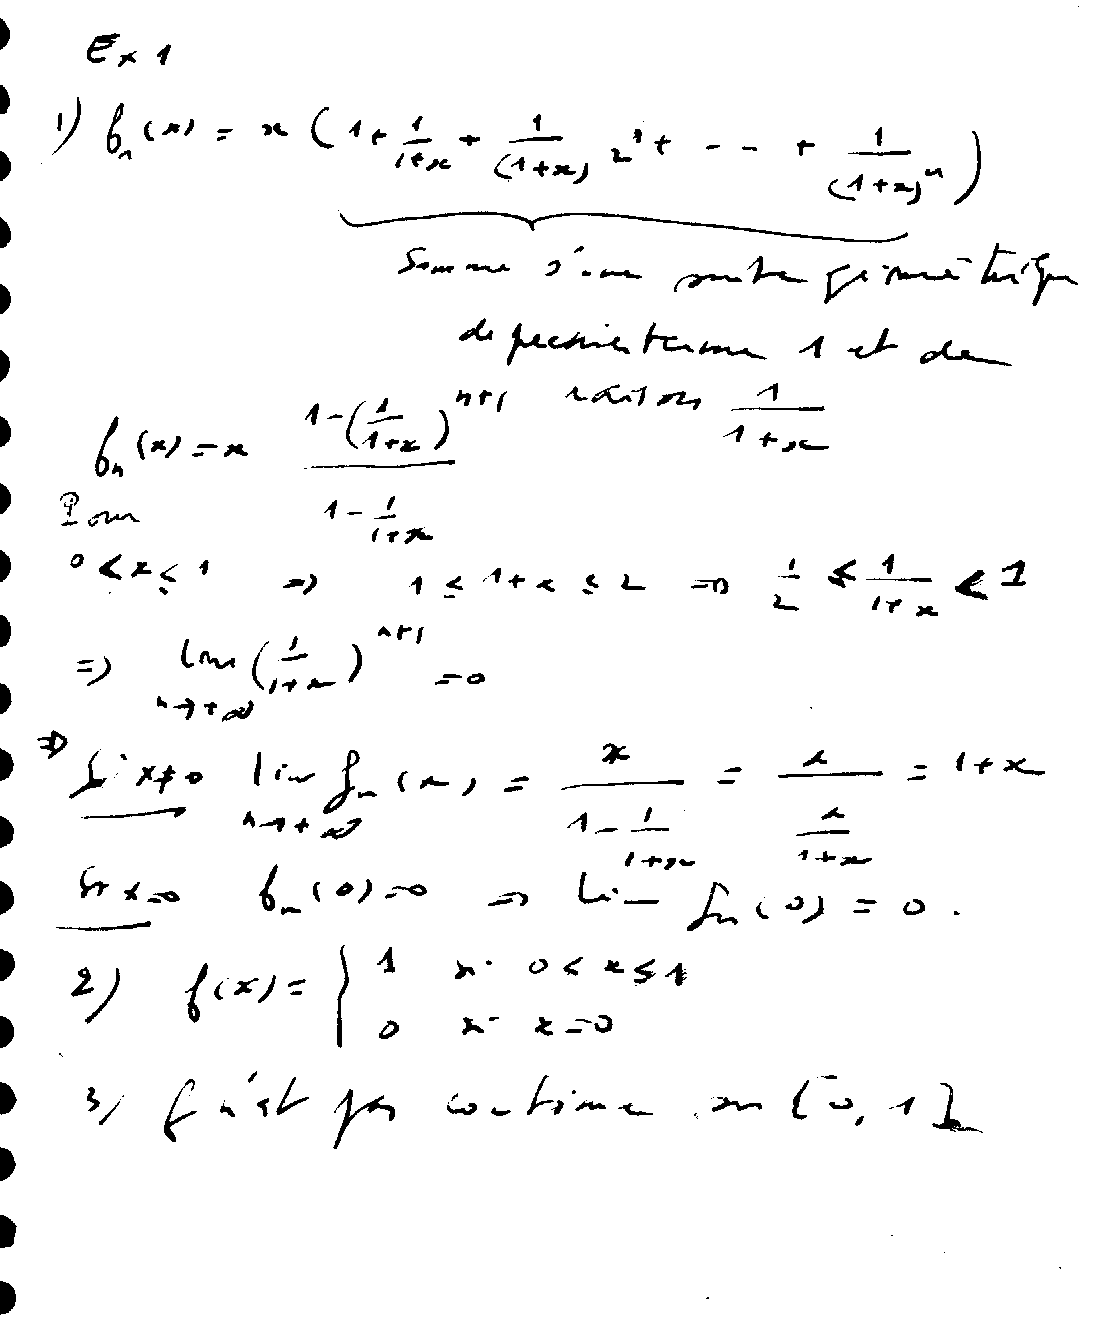 Ex 1
1) fₙ(x) = x (1 + 1/(1+x) + 1/(1+x)² + - - + 1/(1+x)ⁿ)
Somme d'une suite géométrique
de premier terme 1 et de
raison 1/(1+x)
fₙ(x) = x (1-(1/(1+x))ⁿ⁺¹)/(1-1/(1+x))
Pour
0 < x ≤ 1 => 1 ≤ 1+x ≤ 2 => 1/2 ≤ 1/(1+x) < 1
=> lim n→+∞ (1/(1+x))ⁿ⁺¹ = 0
=> Si x≠0 lim n→+∞ fₙ(x) = x/(1-1/(1+x)) = x/(x/(1+x)) = 1+x
Si x=0 fₙ(0)=0 => lim fₙ(0) = 0.
2) f(x) = { 1 si 0 < x ≤ 1
0 si x=0
3) f n'est pas continue sur [0, 1]